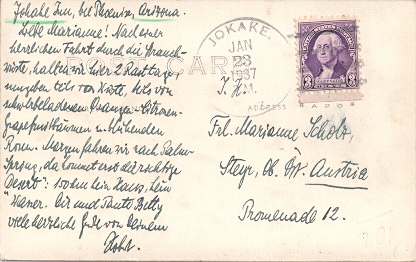 Jokake Inn, bei Phoenix, Arizona.
Liebe Marianne! Nach einer
herrlichen Fahrt durch die
wüste, halten wir hier 2 Rasttage,
umgeben teils von Wüste, teils von
Orangen- Citronen-
Grapefruitbäumen u. blühenden
Rosen. Morgen fahren wir nach Palm
Springs, da kommt erst die richtige
"Desert": wo kein Haus, kein
Wasser. Dir und Tante Betty
viele herzliche Grüße von Deinem
POST CARD
ADDRESS
JOKAKE,
JAN
23
1937
M.
3
Frl. Marianne Scholz,
Steyr, Ob. Öst. Austria
Promenade 12.